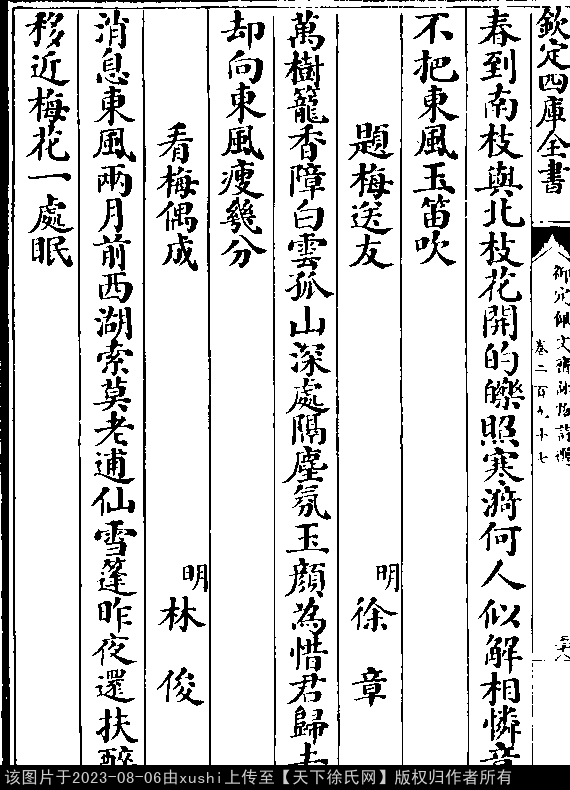 欽定四庫全書
御定佩文齋詠物詩選
卷二百九十七
春到南枝與北枝花開的皪照寒漪何人似解相憐意
不把東風玉笛吹
題梅送友
明
徐章
萬樹籠香障白雲孤山深處隔塵氛玉顔為惜君歸去
却向東風瘦幾分
看梅偶成
明
林俊
消息東風兩月前西湖索莫老逋仙雪篷昨夜還扶醉
移近梅花一處眠
该图片于2023-08-06由xushi上传至【天下徐氏网】版权归作者所有